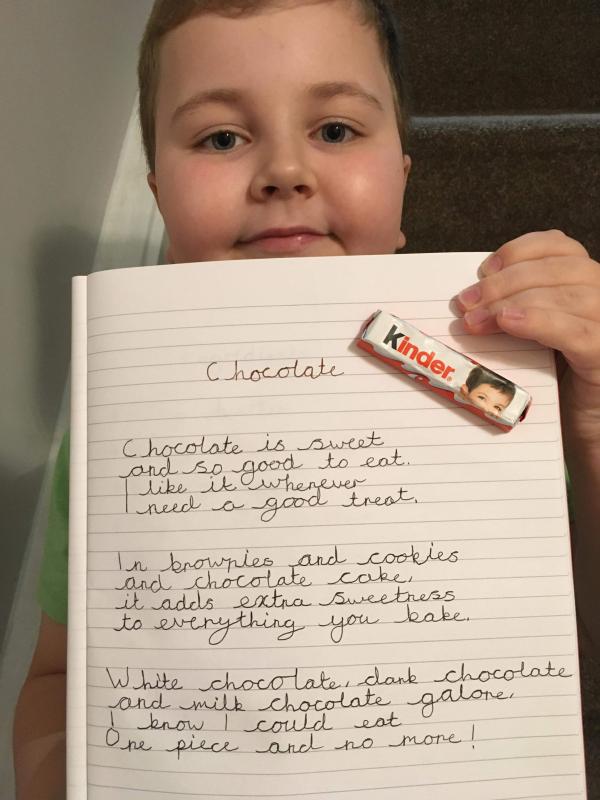 Chocolate
Kinder
Chocolate is sweet
and so good to eat.
I like it whenever
I need a good treat.
In brownies and cookies
and chocolate cake,
it adds extra sweetness
to everything you bake.
White chocolate, dark chocolate
and milk chocolate galore,
I know I could eat
One piece and no more!